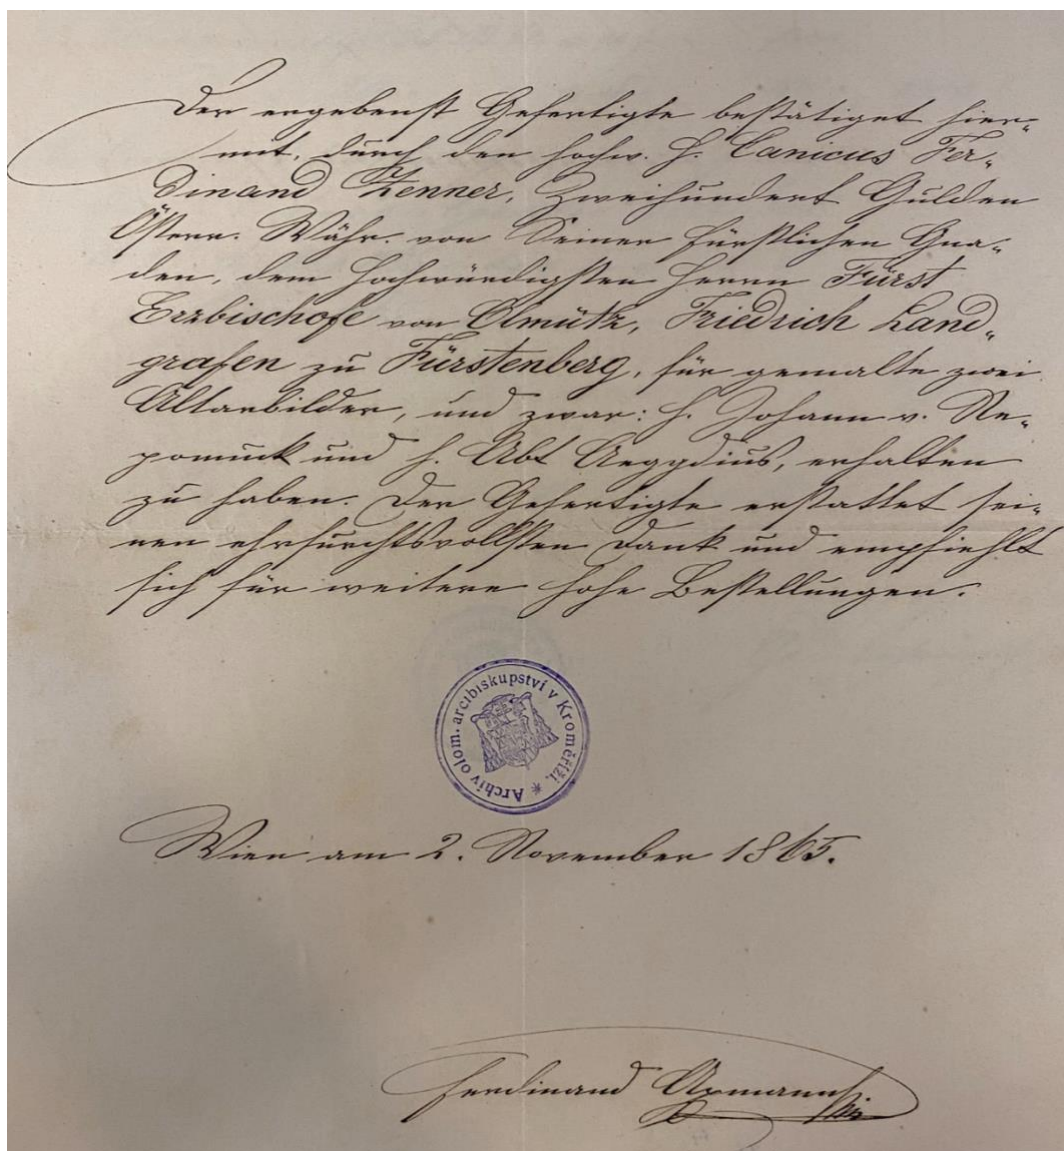 Der ergebenst Gefertigte bestätiget hier-
mit, durch den hochw. H. Canicus Fer-
dinand Zenner, Zweihundert Gulden
Österr. Währ. von Seiner fürstlichen Gna-
den, dem hochwürdigsten Herrn Fürst
Erzbischofe von Olmütz, Friedrich Land-
grafen zu Fürstenberg, für gemalte zwei
Altarbilder, und zwar: h. Johann v. Ne-
pomuck und h. Abt Aeggdius, erhalten
zu haben. Der Gefertigte erstattet sei-
nen ehrfurchtsvollsten Dank und empfiehlt
sich für weitere hohe Bestellungen.
Archiv olom. arcibiskupství v Kroměříži. *
Wien am 2. November 1865.
Ferdinand Axmann